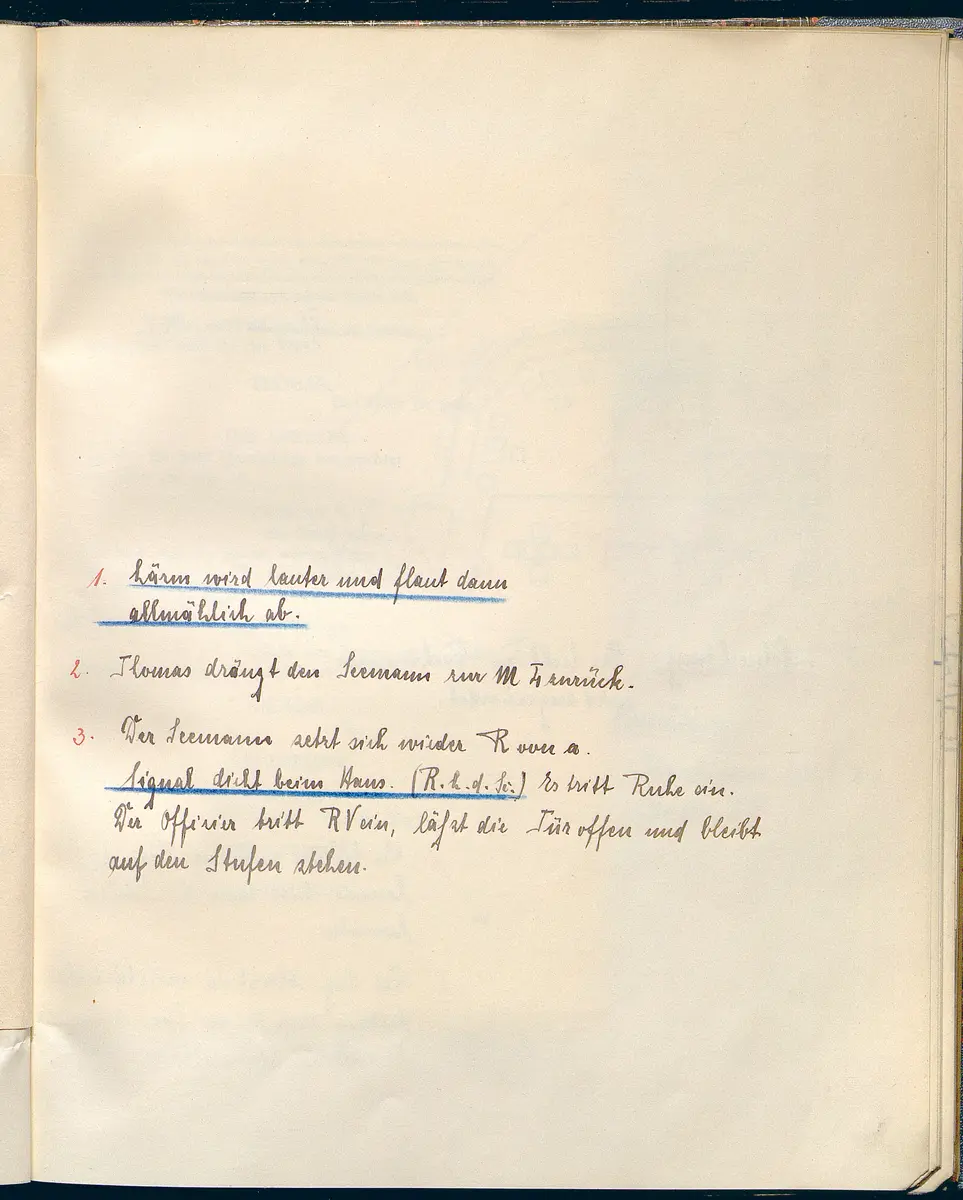 1. Lärm wird lauter und flaut dann
allmählich ab.
2. Thomas drängt den Seemann zur M zurück.
3. Der Seemann setzt sich wieder R von a.
Signal dicht beim Haus. (R.h.d.Sc.) Es tritt Ruhe ein.
Der Offizier tritt RV ein, läßt die Tür offen und bleibt
auf den Stufen stehen.